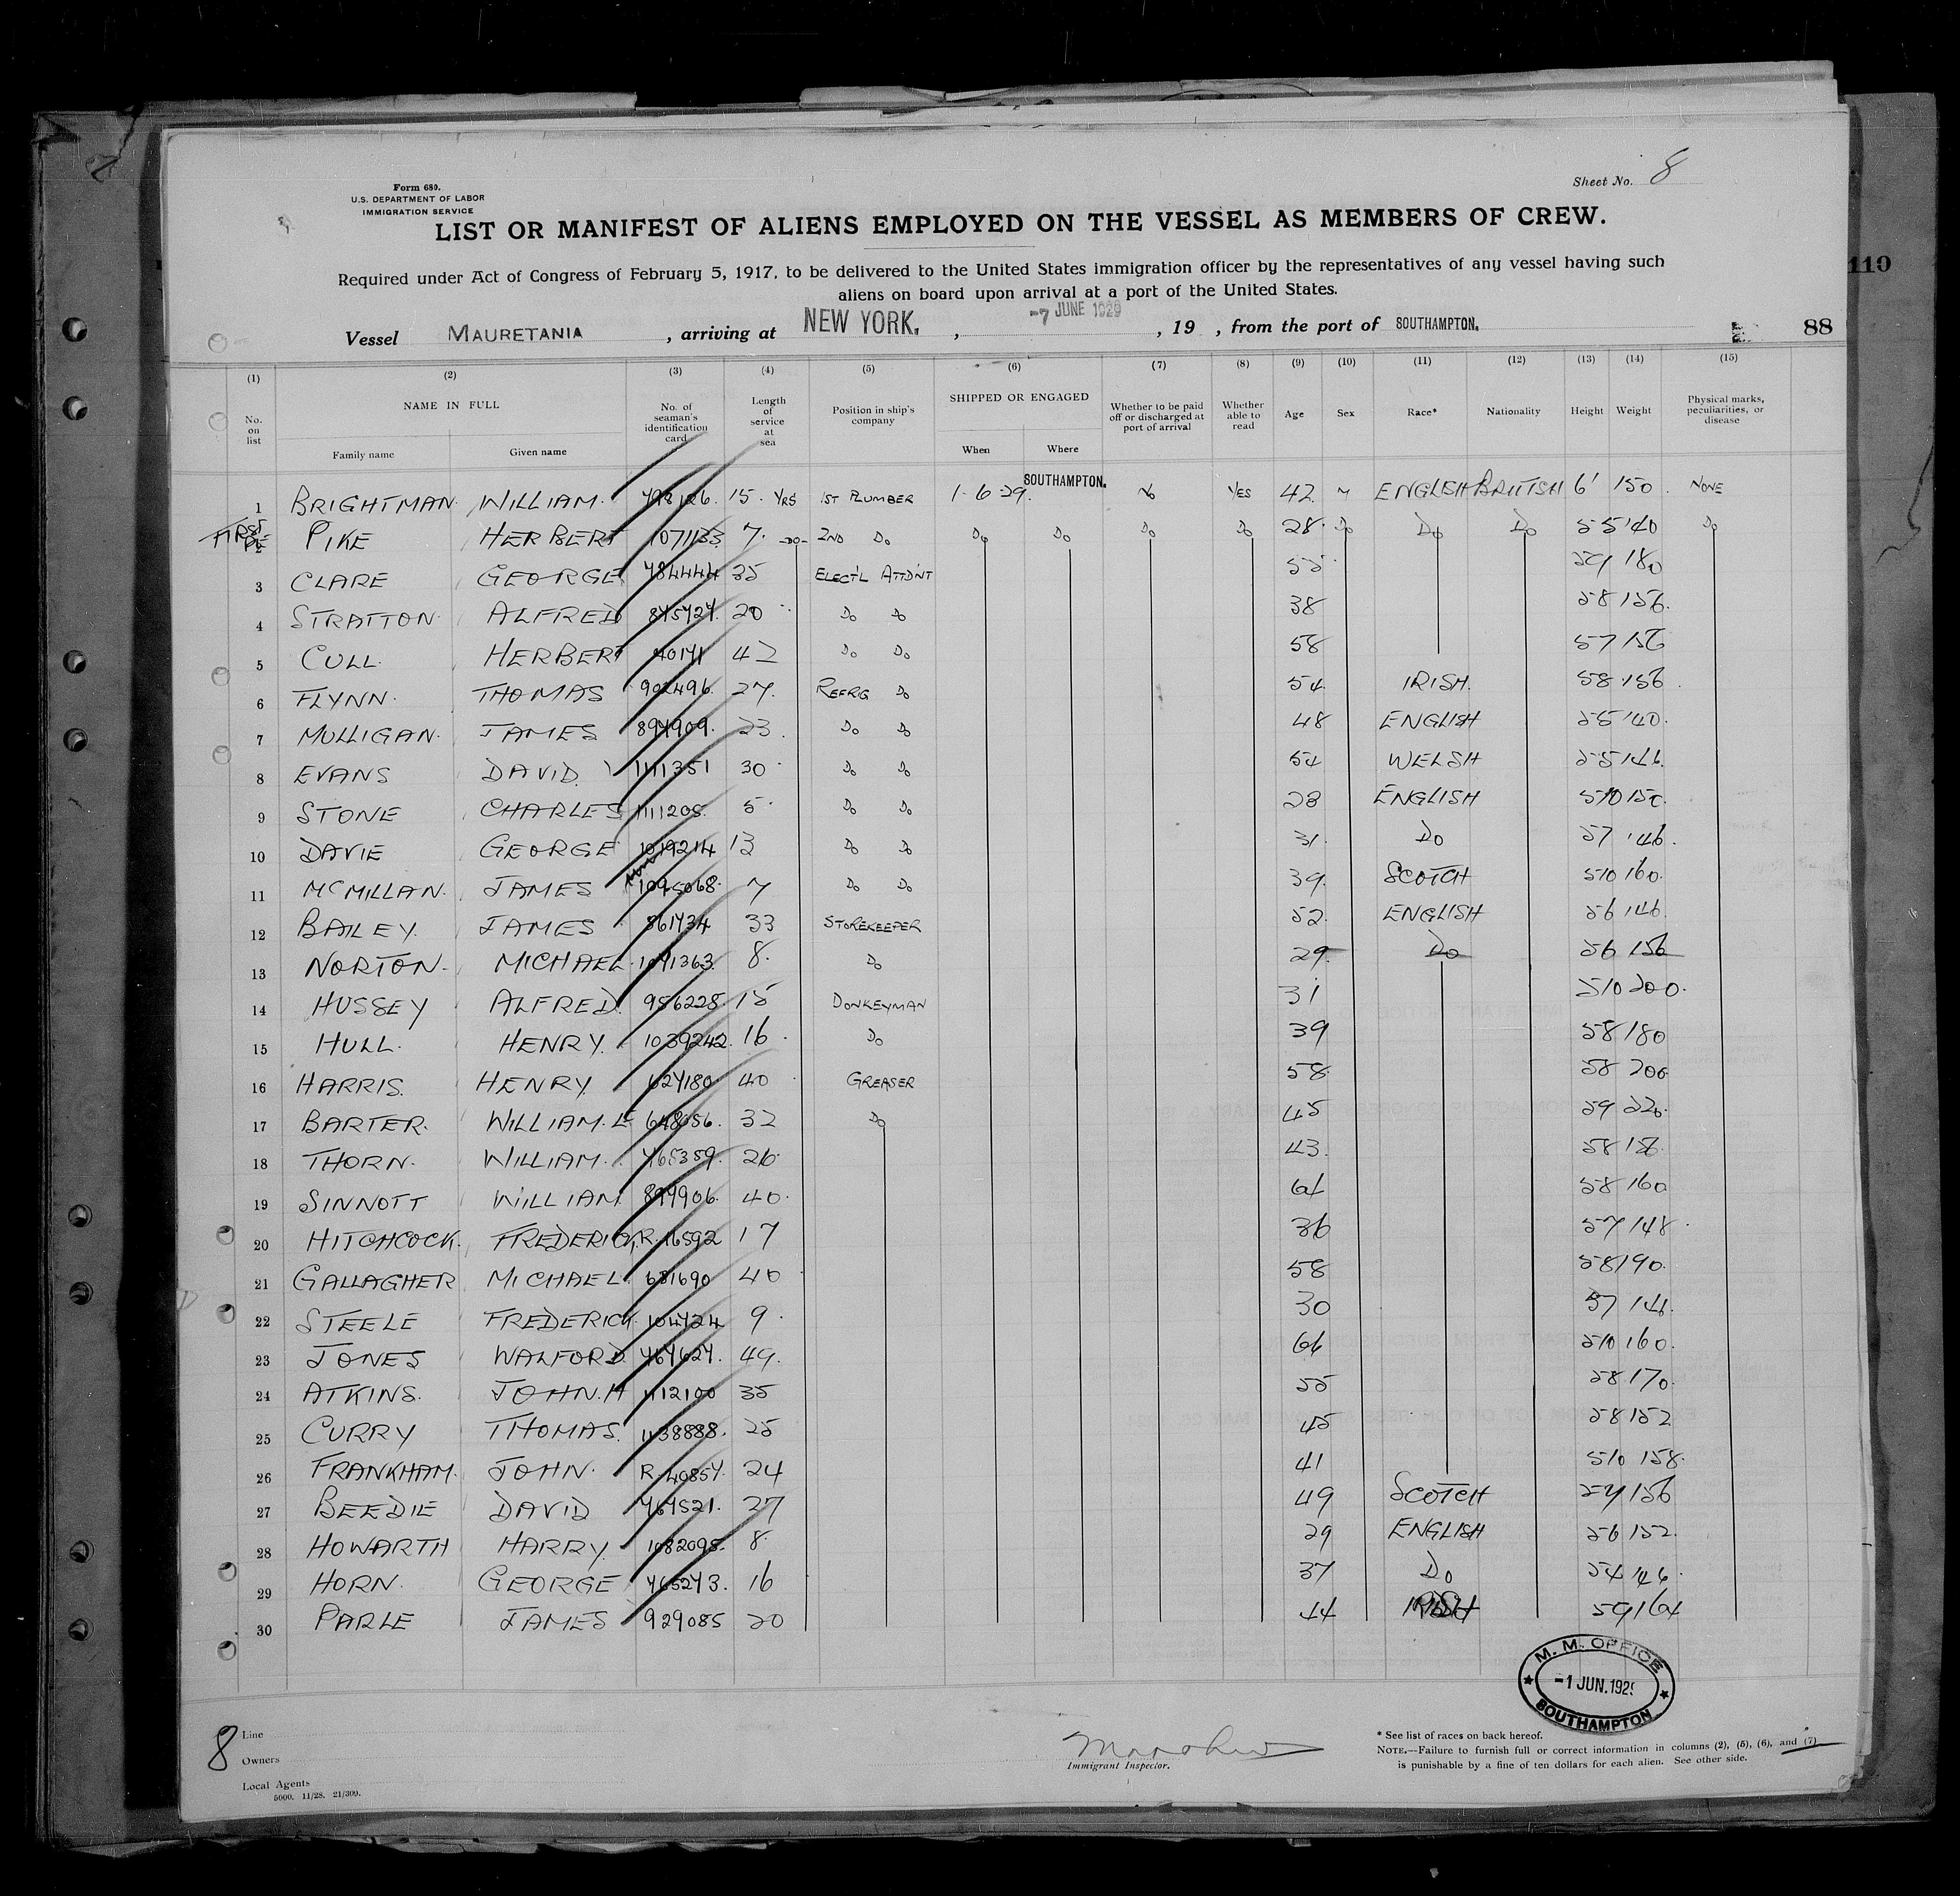 110
Sheet No. 8
Form 680.
U.S. DEPARTMENT OF LABOR
IMMIGRATION SERVICE
LIST OR MANIFEST OF ALIENS EMPLOYED ON THE VESSEL AS MEMBERS OF CREW.
Required under Act of Congress of February 5, 1917, to be delivered to the United States immigration officer by the representatives of any vessel having such
aliens on board upon arrival at a port of the United States.
Vessel MAURETANIA , arriving at NEW YORK. , -7 JUNE 1929 , 19 , from the port of SOUTHAMPTON. 88
(1) (2) (3) (4) (5) (6) (7) (8) (9) (10) (11) (12) (13) (14) (15)
No. on list NAME IN FULL Family name Given name No. of seaman's identification card Length of service at sea Position in ship's company SHIPPED OR ENGAGED When Where Whether to be paid off or discharged at port of arrival Whether able to read Age Sex Race* Nationality Height Weight Physical marks, peculiarities, or disease
1 BRIGHTMAN. WILLIAM. 798126. 15. YRS 1ST PLUMBER 1-6-29. SOUTHAMPTON. No YES 42 M ENGLISH BRITISH 6' 150. NONE
2 PIKE HERBERT 1071133 7. -DO- 2ND Do Do Do Do Do 28. Do Do Do 55 140 Do
3 CLARE GEORGE 784444 35 ELECT'L ATTD'NT 55 59 180
4 STRATTON. ALFRED 20 Do Do 38 58 156.
5 CULL. HERBERT 42 Do Do 58 57 156
6 FLYNN. THOMAS 902496. 27. REFRIG Do 54 IRISH. 58 156
7 MULLIGAN. JAMES 897909. 23. Do Do 48 ENGLISH 55 140.
8 EVANS DAVID 1111351 30 Do Do 54 WELSH 55 146.
9 STONE CHARLES 1111205. 5. Do Do 28 ENGLISH 510 150.
10 DAVIE GEORGE 1019214 13 Do Do 31. Do 57 146.
11 MCMILLAN. JAMES 1095068. 7 Do Do 39. SCOTCH 510 160.
12 BAILEY. JAMES 861734 33 STOREKEEPER 52. ENGLISH 56 146.
13 NORTON. MICHAEL. 1071363. 8. Do 29. Do 56 156
14 HUSSEY ALFRED. 956228. 15 DONKEYMAN 31 510 200.
15 HULL. HENRY. 1039242. 16. Do 39 58 180
16 HARRIS. HENRY. 627180 40 GREASER 58 58 200
17 BARTER. WILLIAM. 648656. 32 Do 45 59 220.
18 THORN. WILLIAM. 765359. 26. 43. 58 156.
19 SINNOTT WILLIAM 899906. 40. 61 58 160
20 HITCHCOCK. FREDERICK. R.16592 17 36 57 148.
21 GALLAGHER MICHAEL. 681690 40 58 58 190.
22 STEELE FREDERICK. 104724 9. 30 57 141.
23 JONES WALFORD. 767627. 49. 66 510 160.
24 ATKINS. JOHN.H 1112100 35 55 58 170.
25 CURRY THOMAS. 1138888. 25 45 58 152
26 FRANKHAM. JOHN. R.40857. 24 41 510 158.
27 BEEDIE DAVID 767521. 27 49 SCOTCH 57 156
28 HOWARTH HARRY. 1082098. 8. 29 ENGLISH 56 152.
29 HORN. GEORGE 765273. 16 37 Do 54 146.
30 PARLE JAMES 929085 20 44 IRISH 59 164
M. M. OFFICE
-1 JUN. 1929
SOUTHAMPTON
8
Line
Owners
Local Agents
5000. 11/28. 21/309.
Immigrant Inspector.
* See list of races on back hereof.
NOTE.—Failure to furnish full or correct information in columns (2), (5), (6), and (7)
is punishable by a fine of ten dollars for each alien. See other side.